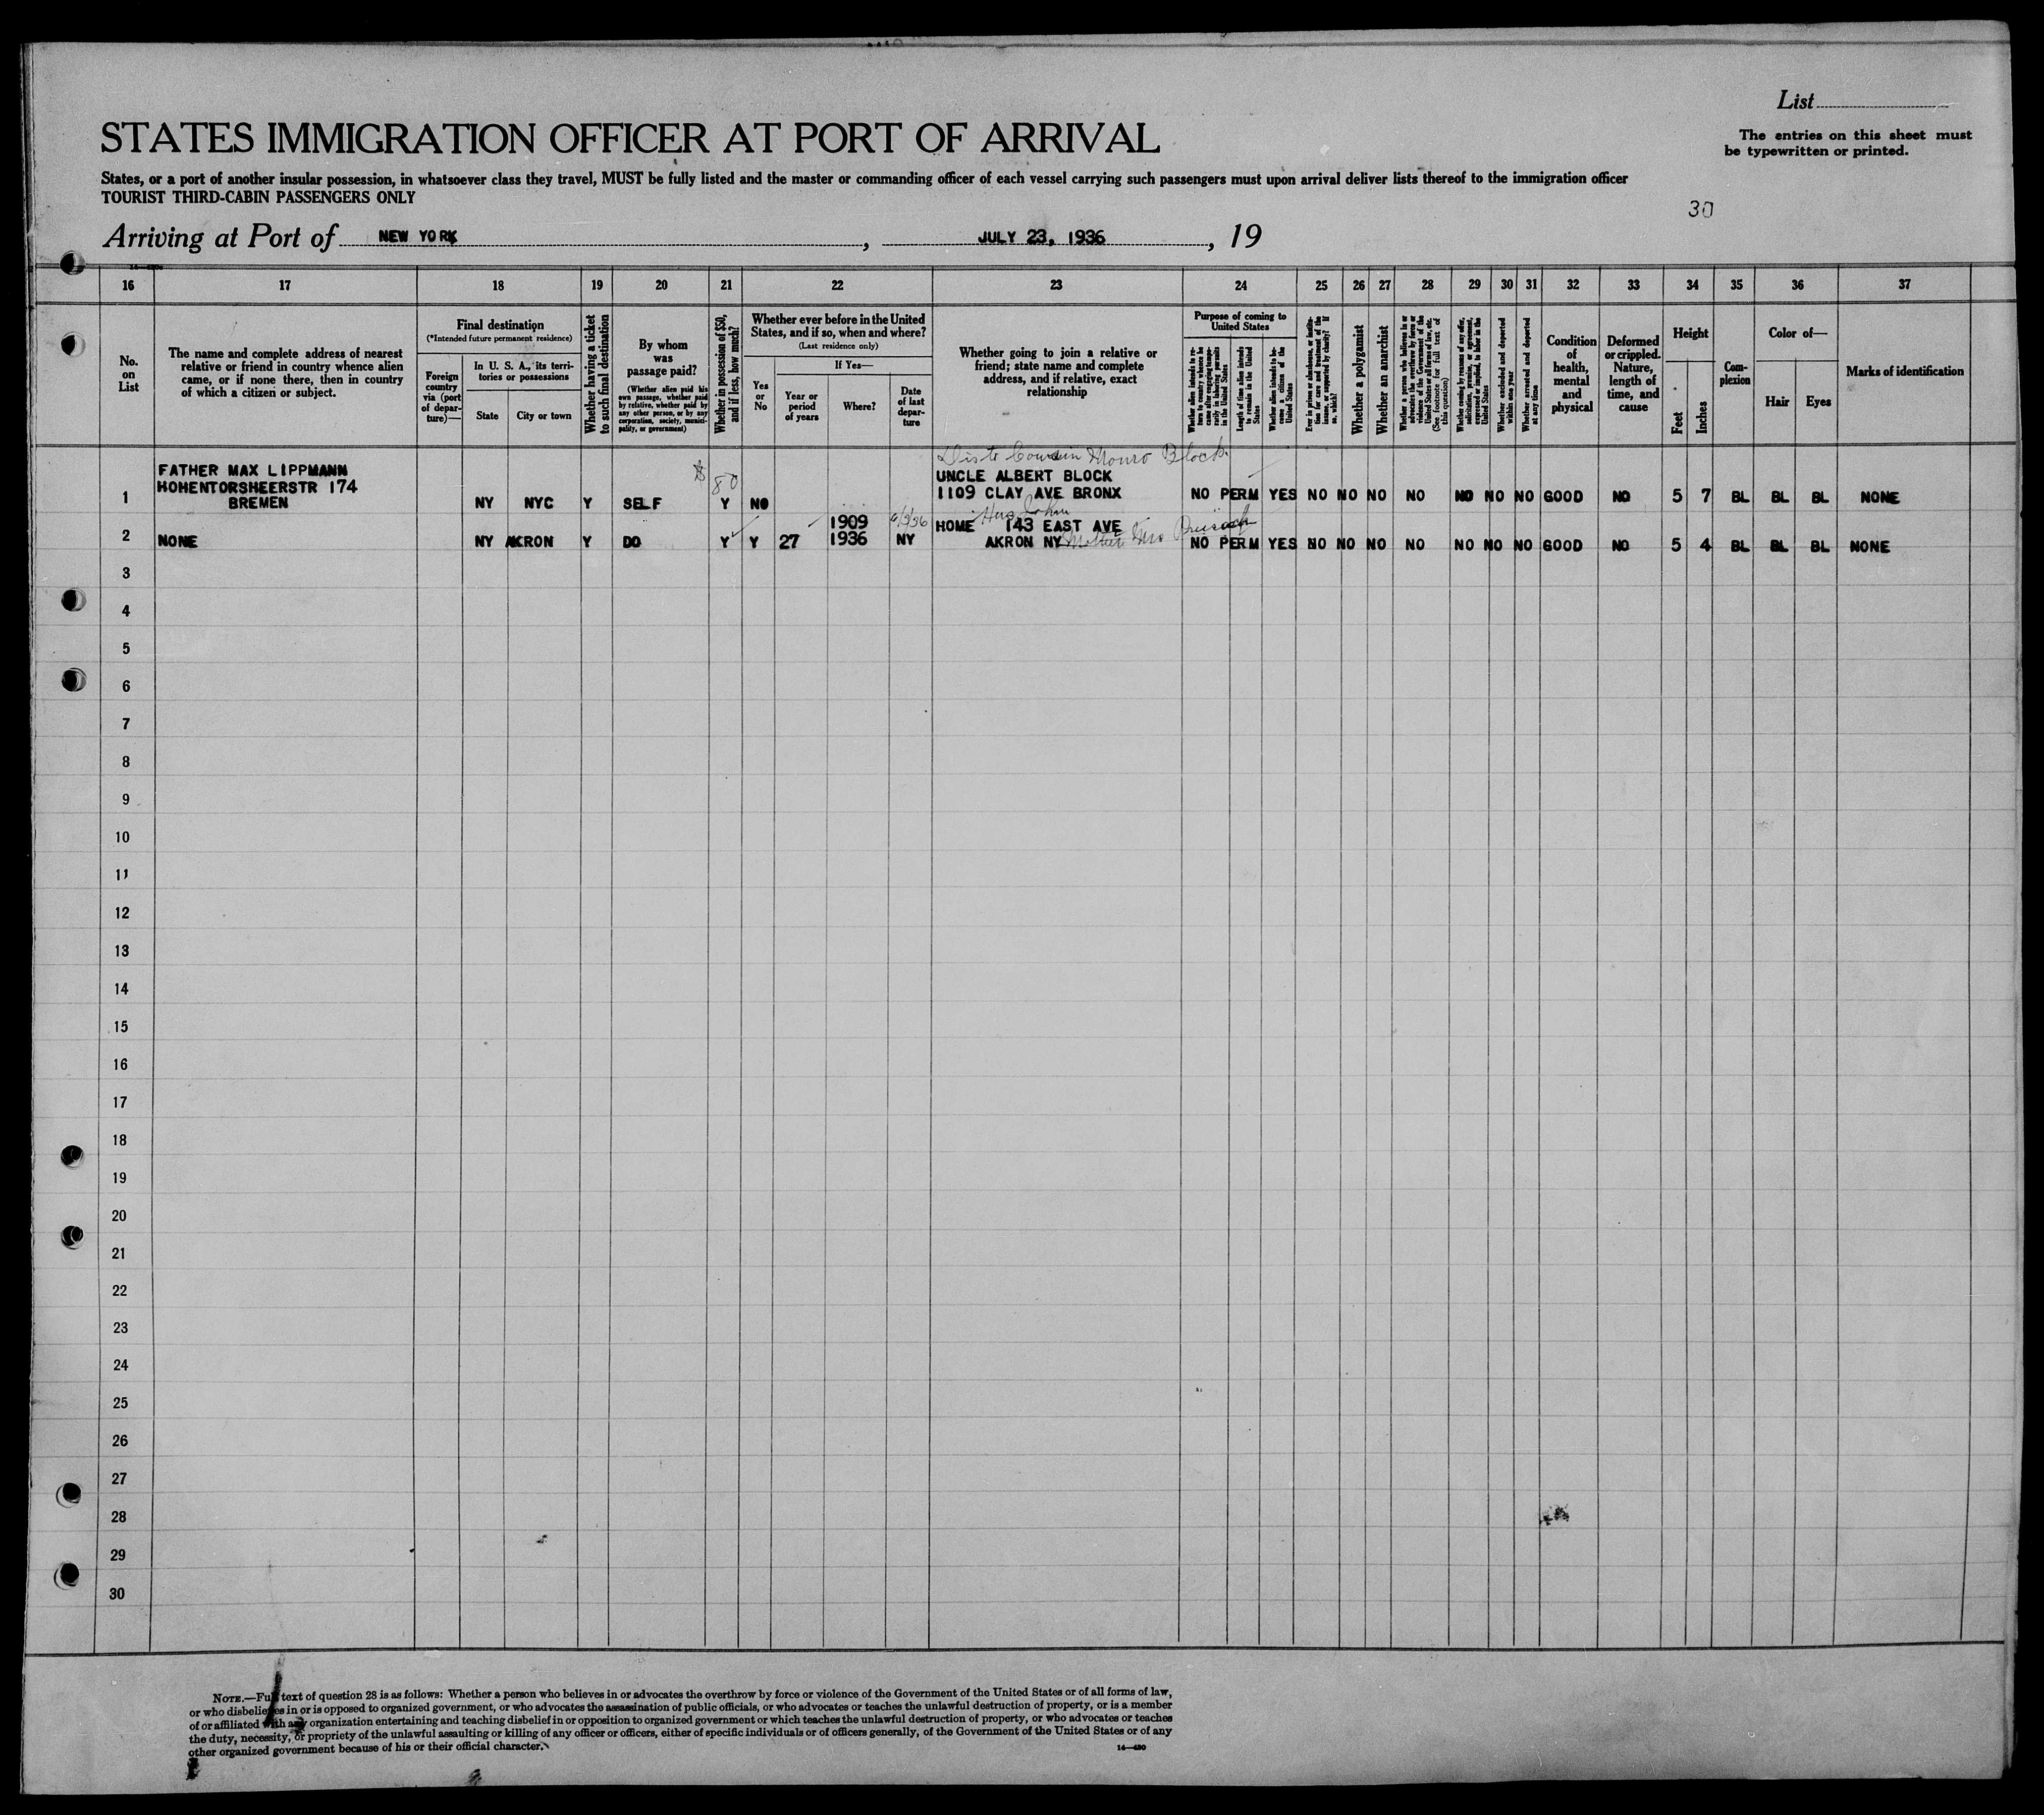 List
STATES IMMIGRATION OFFICER AT PORT OF ARRIVAL
The entries on this sheet must
be typewritten or printed.
States, or a port of another insular possession, in whatsoever class they travel, MUST be fully listed and the master or commanding officer of each vessel carrying such passengers must upon arrival deliver lists thereof to the immigration officer
TOURIST THIRD-CABIN PASSENGERS ONLY
30
Arriving at Port of NEW YORK, JULY 23, 1936, 19
16 17 18 19 20 21 22 23 24 25 26 27 28 29 30 31 32 33 34 35 36 37
No.
on
List
The name and complete address of nearest
relative or friend in country whence alien
came, or if none there, then in country
of which a citizen or subject.
Final destination
(*Intended future permanent residence)
Foreign
country
via (port
of depar-
ture)—
In U. S. A., its terri-
tories or possessions
State
City or town
Whether having a ticket
to such final destination
By whom
was
passage paid?
(Whether alien paid his
own passage, whether paid
by relative, whether paid by
any other person, or by any
corporation, society, munici-
pality, or government)
Whether in possession of $50,
and if less, how much?
Whether ever before in the United
States, and if so, when and where?
(Last residence only)
Yes
or
No
If Yes—
Year or
period
of years
Where?
Date
of last
depar-
ture
Whether going to join a relative or
friend; state name and complete
address, and if relative, exact
relationship
Purpose of coming to
United States
Whether alien intends to re-
turn to country whence he
came after engaging tempo-
rarily in laboring pursuits
in the United States
Length of time alien intends
to remain in the United
States
Whether alien intends to be-
come a citizen of the
United States
Ever in prison or almshouse, or institu-
tion for care and treatment of the
insane, or supported by charity? If
so, which?
Whether a polygamist
Whether an anarchist
Whether a person who believes in or
advocates the overthrow by force or
violence of the Government of the
United States or all forms of law, etc.
(See footnote for full text of
this question)
Whether coming by reason of any offer,
solicitation, promise, or agreement,
expressed or implied, to labor in the
United States
Whether excluded and deported
within one year
Whether arrested and deported
at any time
Condition
of
health,
mental
and
physical
Deformed
or crippled.
Nature,
length of
time, and
cause
Height
Feet
Inches
Com-
plexion
Color of—
Hair
Eyes
Marks of identification
Cousin Monro Block
FATHER MAX LIPPMANN $ 80 UNCLE ALBERT BLOCK
HOHENTORSHEERSTR 174 1109 CLAY AVE BRONX
1 BREMEN NY NYC Y SELF Y NO NO PERM YES NO NO NO NO NO NO NO GOOD NO 5 7 BL BL BL NONE
Hus John
1909 HOME 143 EAST AVE
2 NONE NY AKRON Y DO Y Y 27 1936 NY AKRON NY Mother Mrs NO PERM YES NO NO NO NO NO NO NO GOOD NO 5 4 BL BL BL NONE
3
4
5
6
7
8
9
10
11
12
13
14
15
16
17
18
19
20
21
22
23
24
25
26
27
28
29
30
NOTE.—Full text of question 28 is as follows: Whether a person who believes in or advocates the overthrow by force or violence of the Government of the United States or of all forms of law,
or who disbelieves in or is opposed to organized government, or who advocates the assassination of public officials, or who advocates or teaches the unlawful destruction of property, or is a member
of or affiliated with any organization entertaining and teaching disbelief in or opposition to organized government or which teaches the unlawful destruction of property, or who advocates or teaches
the duty, necessity, or propriety of the unlawful assaulting or killing of any officer or officers, either of specific individuals or of officers generally, of the Government of the United States or of any
other organized government because of his or their official character.
14—430